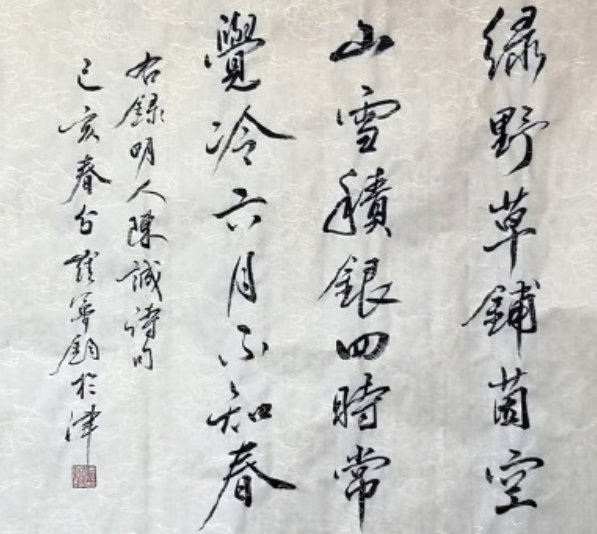 綠野草鋪茵空
山雪積銀四時常
覺冷六月不知春
右録明人陳誠詩句
己亥春分 於津